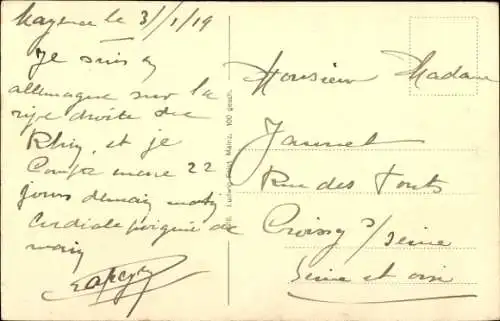 Mayence le 31/1/19
Je suis en
allemagne sur la
rive droite du
Rhin, et je
Compte 22
jours demain matin
Cordiale poignée de
main
Monsieur Madame
Jaunet
Rue des Ponts
Croissy s/ Seine
Seine et oise
Mainz. 600 gesch.